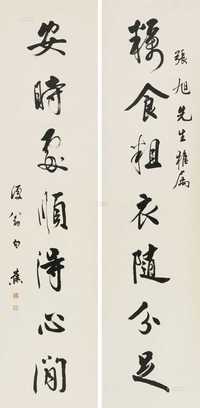 張旭先生雅屬
糲食粗衣隨分足
安時處順得心閒
復翁白蕉